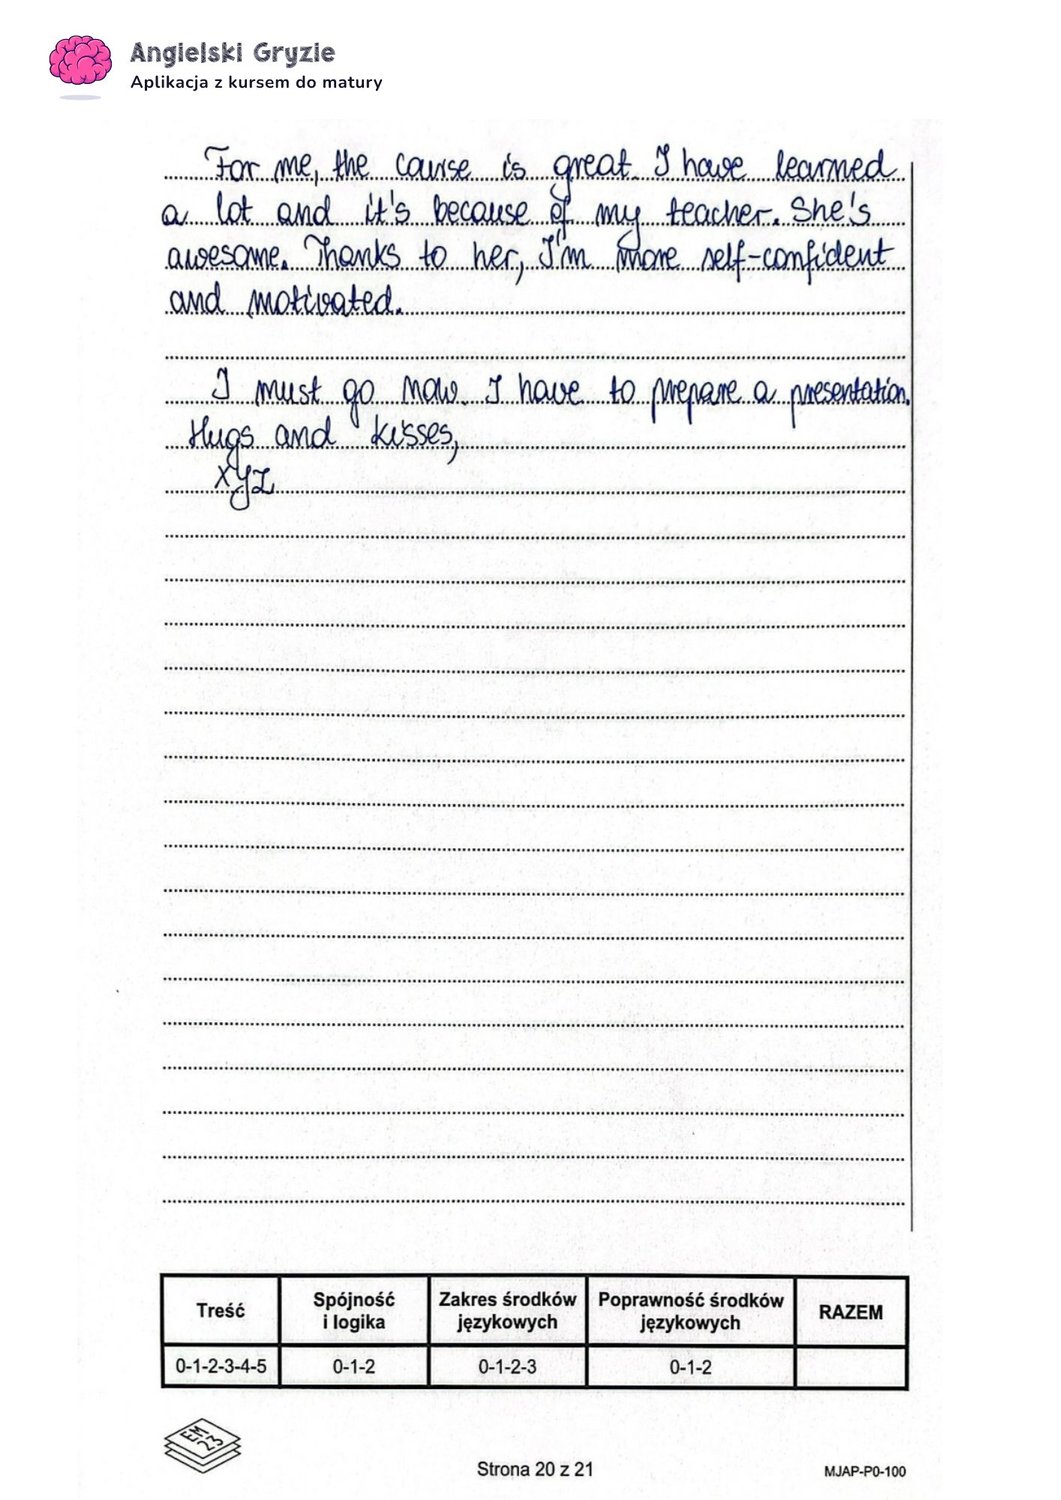 Angielski Gryzie
Aplikacja z kursem do matury
For me, the course is great. I have learned
a lot and it's because of my teacher. She's
awesome. Thanks to her, I'm more self-confident
and motivated.
I must go now. I have to prepare a presentation.
Hugs and kisses,
XYZ
Treść
Spójność
i logika
Zakres środków
językowych
Poprawność środków
językowych
RAZEM
0-1-2-3-4-5
0-1-2
0-1-2-3
0-1-2
EM
23
Strona 20 z 21
MJAP-P0-100